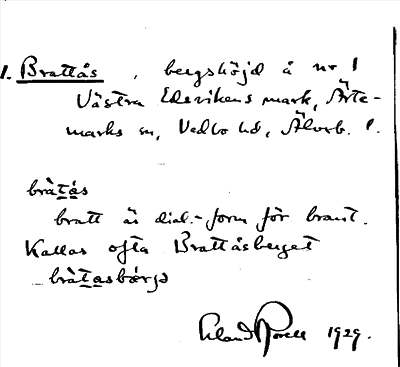 1. Brattås, bergshöjd å nr 1
Västra Edsvikens mark, Ärte-
marks sn, Vedbo hd, Älvsb. l.
bràtás
bratt är dial.-form för brant.
Kallas ofta Brattåsberget
bràtasbárjə
Erland Rosell 1929.